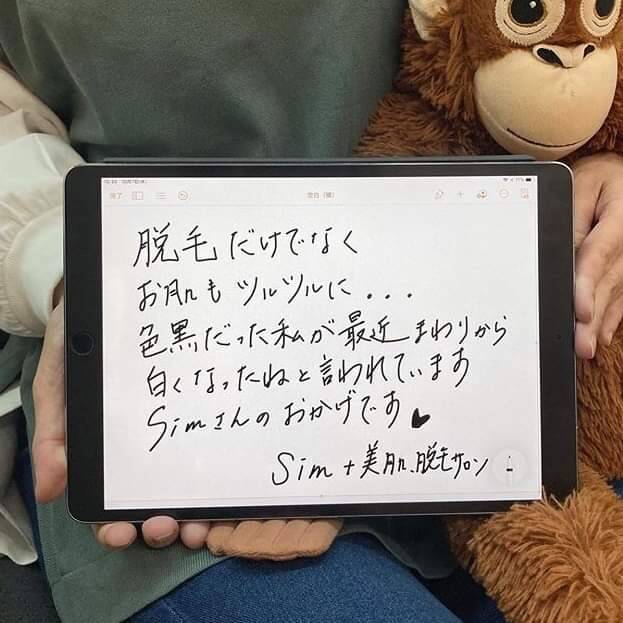 完了
空白(横)
脱毛だけでなく
お肌もツルツルに...
色黒だった私が最近まわりから
白くなったねと言われています
Simさんのおかげです♥
Sim+美肌、脱毛サロン